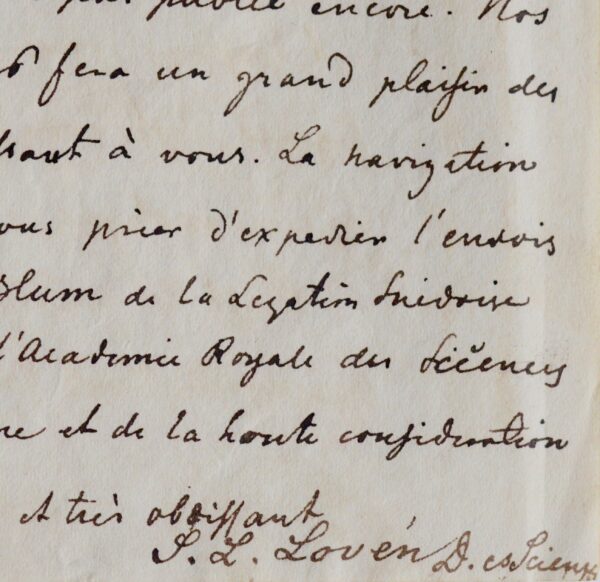 publié encore. Nos
fera un grand plaisir des
à vous. La navigation
prier d'expedier l'envois
Blum de la Legation Suedoise
l'Academie Royale des Sciences
et de la haute consideration
et très obeissant
S. L. Lovén D. es Sciences